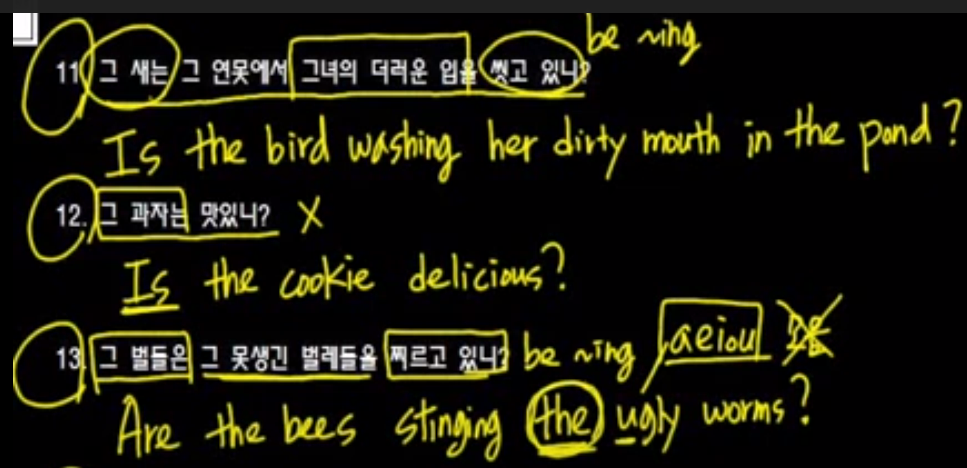 be ~ing
11 그 새는 그 연못에서 그녀의 더러운 입을 씻고 있니?
Is the bird washing her dirty mouth in the pond?
12. 그 과자는 맛있니? X
Is the cookie delicious?
aeiou
13. 그 벌들은 그 못생긴 벌레들을 찌르고 있니? be ~ing
Are the bees stinging the ugly worms?